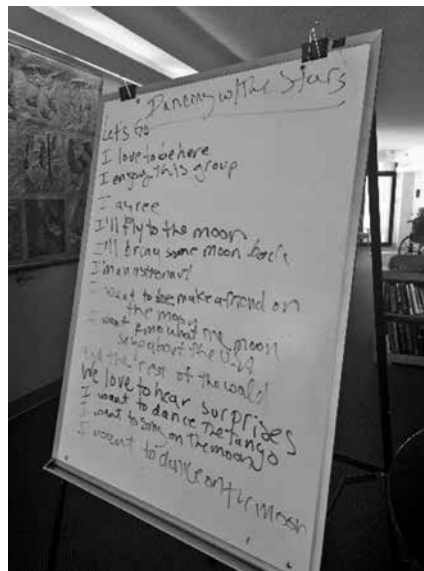 Dancing w/The Stars
Lets Go
I love to be here
I enjoy this group
I agree
I'll fly to the moon
I'll bring some moon back
I'm an astronaut
I want to make a friend on
the moon
I want know what the moon
says about the U.S.A
the rest of the world
We love to hear surprises
I want to dance the tango
I want to on the moon
I want to dance on the moon